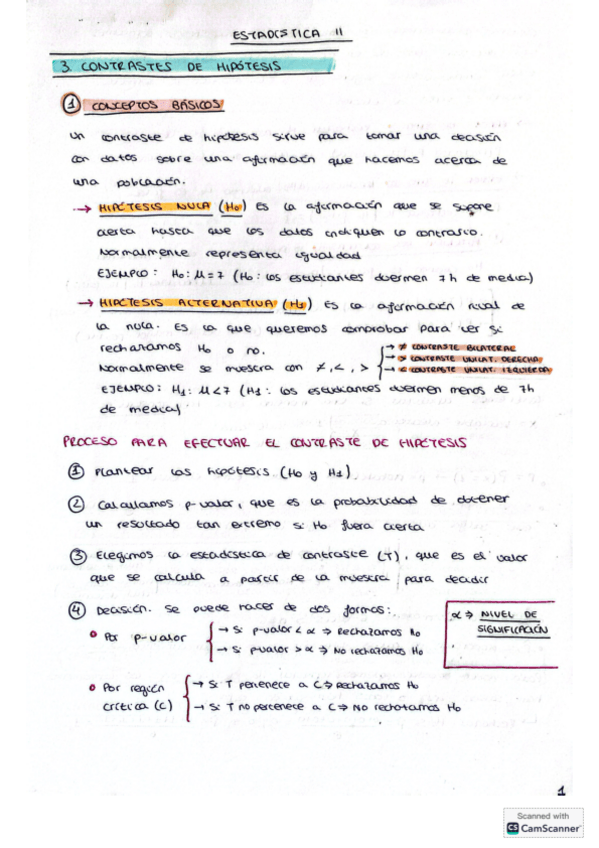 ESTADÍSTICA II
3. CONTRASTES DE HIPÓTESIS
① CONCEPTOS BÁSICOS
Un contraste de hipótesis sirve para tomar una decisión
con datos sobre una afirmación que hacemos acerca de
una población.
→ HIPÓTESIS NULA (H₀) es la afirmación que se supone
cierta hasta que los datos indiquen lo contrario.
Normalmente representa igualdad
EJEMPLO: H₀: μ = 7 (H₀: los estudiantes duermen 7h de media)
→ HIPÓTESIS ALTERNATIVA (H₁) Es la afirmación rival de
la nula. Es la que queremos comprobar para ver si
rechazamos H₀ o no.
Normalmente se muestra con ≠, <, >
→ ≠ CONTRASTE BILATERAL
→ > CONTRASTE UNILAT. DERECHA
→ < CONTRASTE UNILAT. IZQUIERDA
EJEMPLO: H₁: μ < 7 (H₁: los estudiantes duermen menos de 7h
de media)
PROCESO PARA EFECTUAR EL CONTRASTE DE HIPÓTESIS
① Plantear las hipótesis (H₀ y H₁)
② Calculamos p-valor, que es la probabilidad de obtener
un resultado tan extremo si H₀ fuera cierta
③ Elegimos la estadística de contraste (T), que es el valor
que se calcula a partir de la muestra para decidir
④ Decisión. Se puede hacer de dos formas:
• Por p-valor
→ Si p-valor < α ⇒ Rechazamos H₀
→ Si p-valor > α ⇒ No rechazamos H₀
α ⇒ NIVEL DE
SIGNIFICACIÓN
• Por región
crítica (C)
→ Si T pertenece a C ⇒ rechazamos H₀
→ Si T no pertenece a C ⇒ No rechazamos H₀
1
Scanned with
CS CamScanner